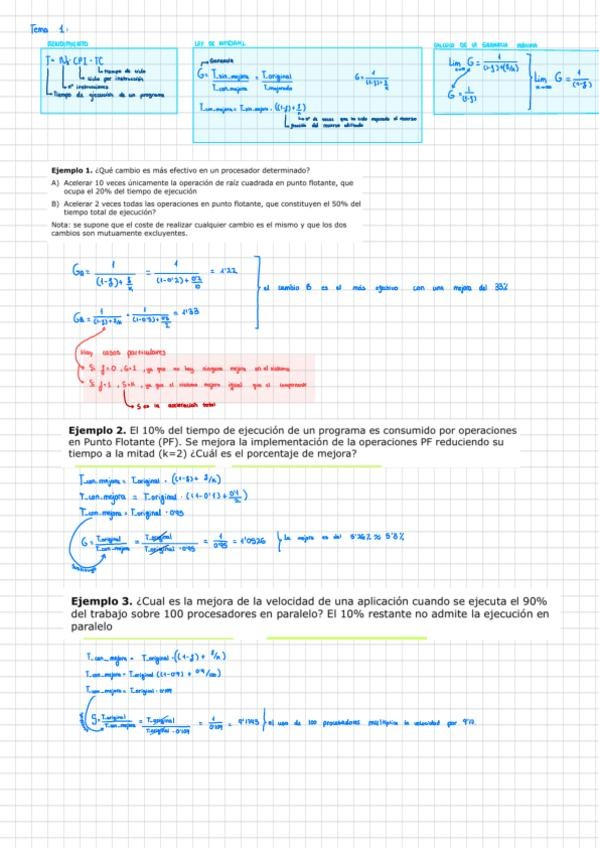 Tema 1:
RENDIMIENTO
T = NI · CPI · TC
tiempo de ciclo
ciclo por instrucción
nº instrucciones
Tiempo de ejecución de un programa
LEY DE AMDAHL
Ganancia
G = T.sin_mejora / T.con_mejora = T.original / T.mejorado
G = 1 / (1-f)+f/k
T.con_mejora = T.sin_mejora · ((1-f)+f/k)
nº de veces que ha sido mejorado el recurso
fracción del recurso utilizado
CÁLCULO DE LA GANANCIA MÁXIMA
Lim G =
G = 1/(1-f)
Lim G = 1/(1-f)
Ejemplo 1. ¿Qué cambio es más efectivo en un procesador determinado?
A) Acelerar 10 veces únicamente la operación de raíz cuadrada en punto flotante, que
ocupa el 20% del tiempo de ejecución
B) Acelerar 2 veces todas las operaciones en punto flotante, que constituyen el 50% del
tiempo total de ejecución?
Nota: se supone que el coste de realizar cualquier cambio es el mismo y que los dos
cambios son mutuamente excluyentes.
= 1'22
el cambio B es el más efectivo con una mejora del 33%
= 1'33
Hay casos particulares
Si f=0, G=1, ya que no hay ninguna mejora en el sistema
Si f=1, S=k, ya que el sistema mejora igual que el componente
S es la aceleración total
Ejemplo 2. El 10% del tiempo de ejecución de un programa es consumido por operaciones
en Punto Flotante (PF). Se mejora la implementación de la operaciones PF reduciendo su
tiempo a la mitad (k=2) ¿Cuál es el porcentaje de mejora?
T.con_mejora = T.original · ((1-f)+ f/k)
T.con_mejora = T.original · ((1-0'1)+ 0'1/2)
T.con_mejora = T.original · 0'95
G = T.original / T.con_mejora = T.original / T.original · 0'95 = 1 / 0'95 = 1'0526
la mejora es del 5'26%
Ejemplo 3. ¿Cual es la mejora de la velocidad de una aplicación cuando se ejecuta el 90%
del trabajo sobre 100 procesadores en paralelo? El 10% restante no admite la ejecución en
paralelo
T.con_mejora = T.original · ((1-f) + f/k)
T.con_mejora = T.original ((1-0'9) + 0'9/100)
T.con_mejora = T.original · 0'109
S = T.original / T.con_mejora = T.original / T.original · 0'109 = 1 / 0'109 = 9'1743
el uso de 100 procesadores multiplica la velocidad por 9'17.